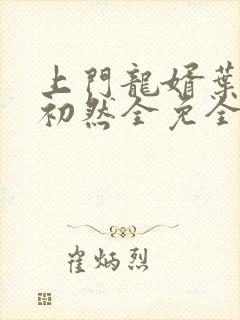 上門龍婿葉
初然全免全
崔炳烈